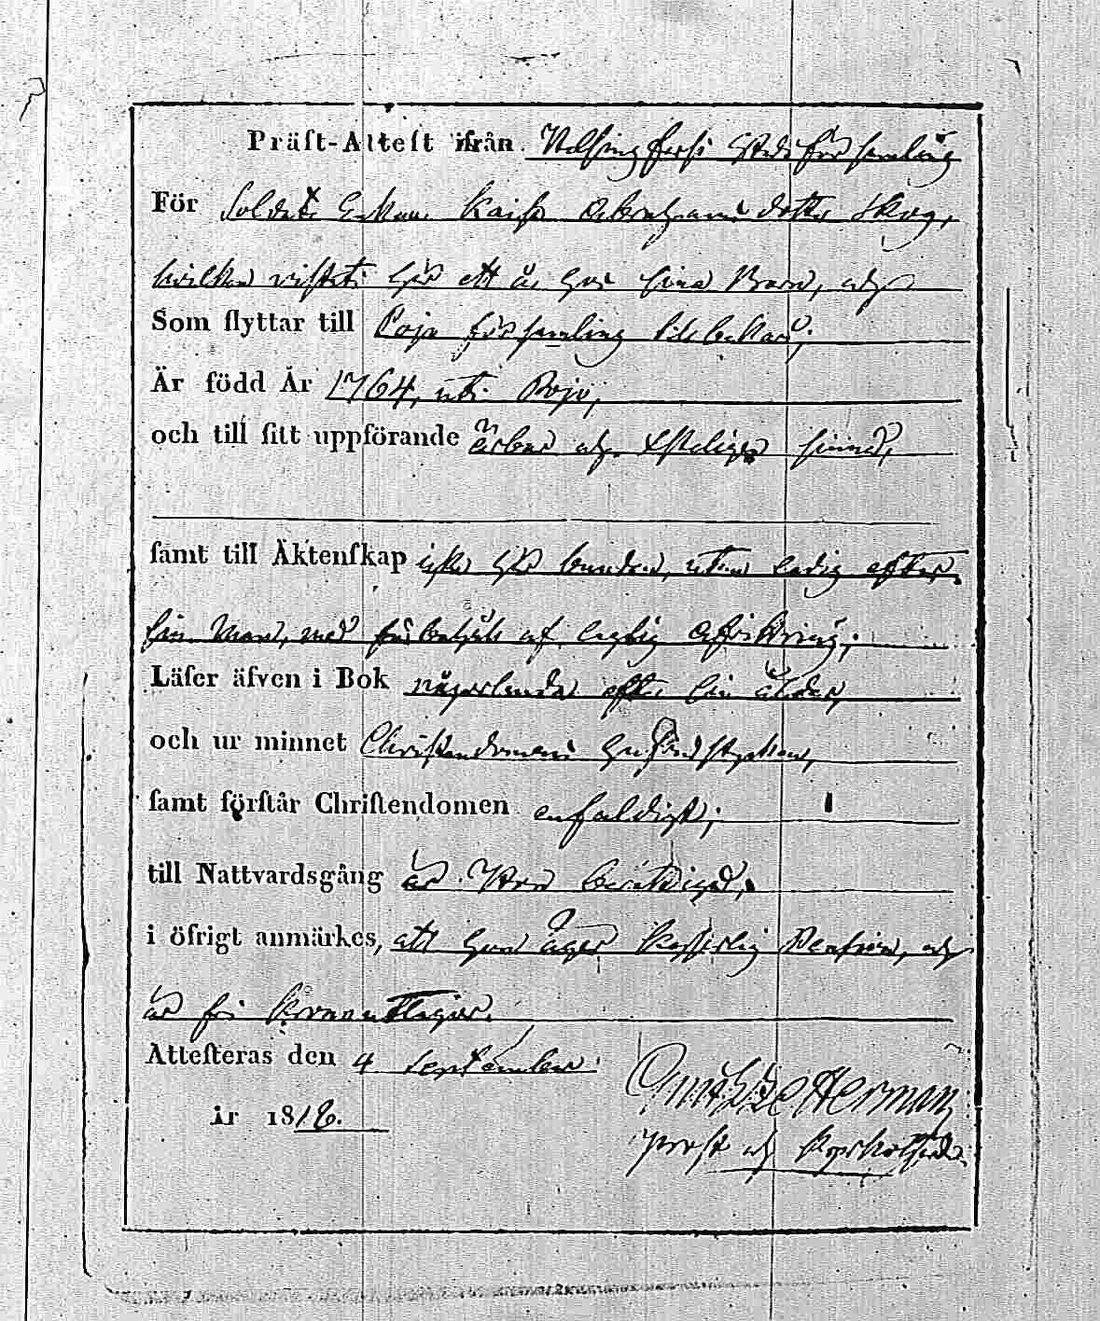 Präst-Attest ifrån Helsingfors Stads församling
För Soldats Enkan Kaisa Abrahams dotter Skog,
hvilken vistats här ett år hos sina Barn, och
Som flyttar till Pojo församling tillbaka;
Är född År 1764, uti Pojo,
och till sitt uppförande ärbar och sinnad,
samt till Äktenskap icke här bunden, utan ledig efter
sin Man, med förbehåll af laglig afvittring;
Läser äfven i Bok någorlunda efter sin ålder,
och ur minnet Christendomens hufvudstycken,
samt förstår Christendomen enfaldigt;
till Nattvardsgång är Hon berättigad,
i öfrigt anmärkes, att hon äger Pension, och
är fri
Attesteras den 4 September
år 1818.
Herman
Prost och Kyrkoherde